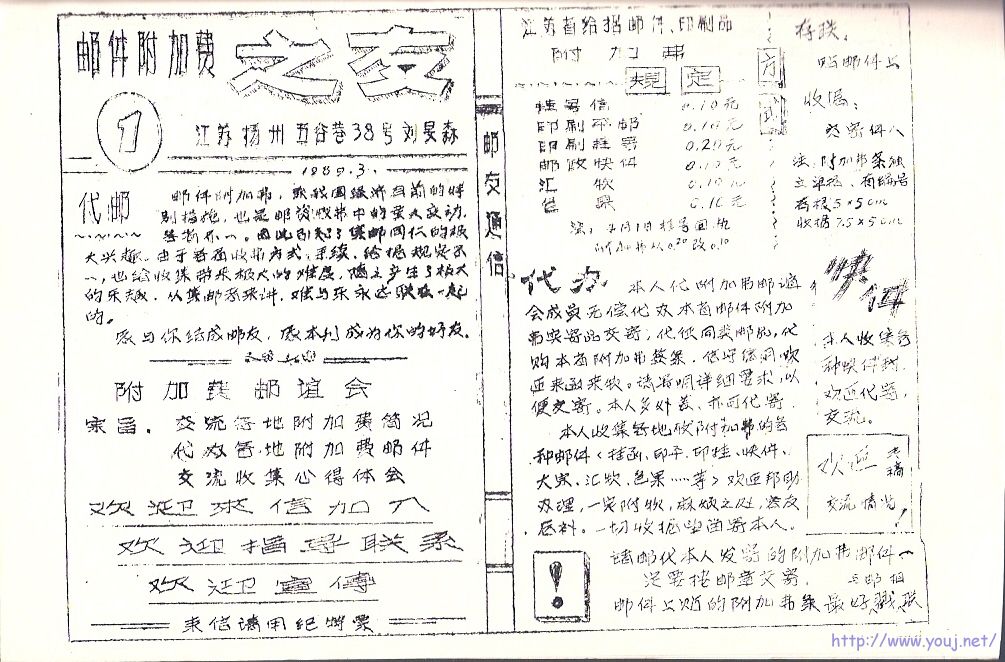 邮件附加费
之友
1
江苏扬州五谷巷38号刘旻森
1989.3.
代邮
邮件附加费，是我国经济目前的特
别措施，也是邮资收费中的重大变动，
各省不一。因此引起了集邮同仁的极
大兴趣。由于各省收费方式、手续、给据规定不
一，也给收集带来极大的难度，随之产生了极大
的乐趣。从集邮者来讲，难与乐永远联在一起
的。
愿与你结成邮友，愿本刊成为你的好友。
附加费邮谊会
宗旨．交流各地附加费简况
代办各地附加费邮件
交流收集心得体会
欢迎来信加入
欢迎指导联系
欢迎宣传
来信请用纪特票
邮友通信
江苏省给据邮件、印刷品
附加费
规定
挂号信 0.10元
印刷平邮 0.10元
印刷挂号 0.20元
邮政快件 0.10元
汇款 0.10元
包裹 0.10元
方式
存联：
贴邮件上
收据：
交寄件人
注：附加费条独
立单据，有编号
存根5×5cm
收据7.5×5cm
代办
本人代附加费邮谊
会成员无偿代办本省邮件附加
费实寄品交寄；代供同类邮品，代
购本省附加费签条，
迎来函来款。请写明详细要求，以
便交寄。本人多外县，亦可代寄．
本人收集各地收附加费的各
种邮件（挂函、印平、印挂、快件、
大宗、汇款、包裹……等）欢迎帮助
办理，一定附款，麻烦之处，
一切收据望留寄本人。
快件
本人收集各
种快件封，
欢迎代寄，
交流。
欢迎来稿
交流情况！
！
请邮代本人发寄的附加费邮件一
定要按邮章交寄，
邮件上贴的附加费条最好戳联
http://www.youj.net/